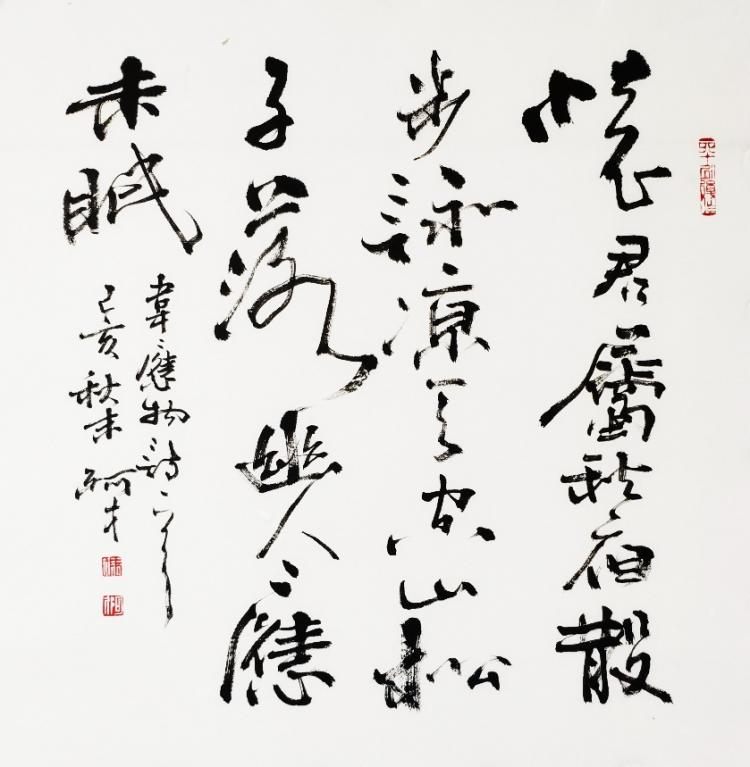 懷君屬秋夜散
步詠涼天空山松
子落幽人應
未眠
韋應物詩一首
己亥秋末